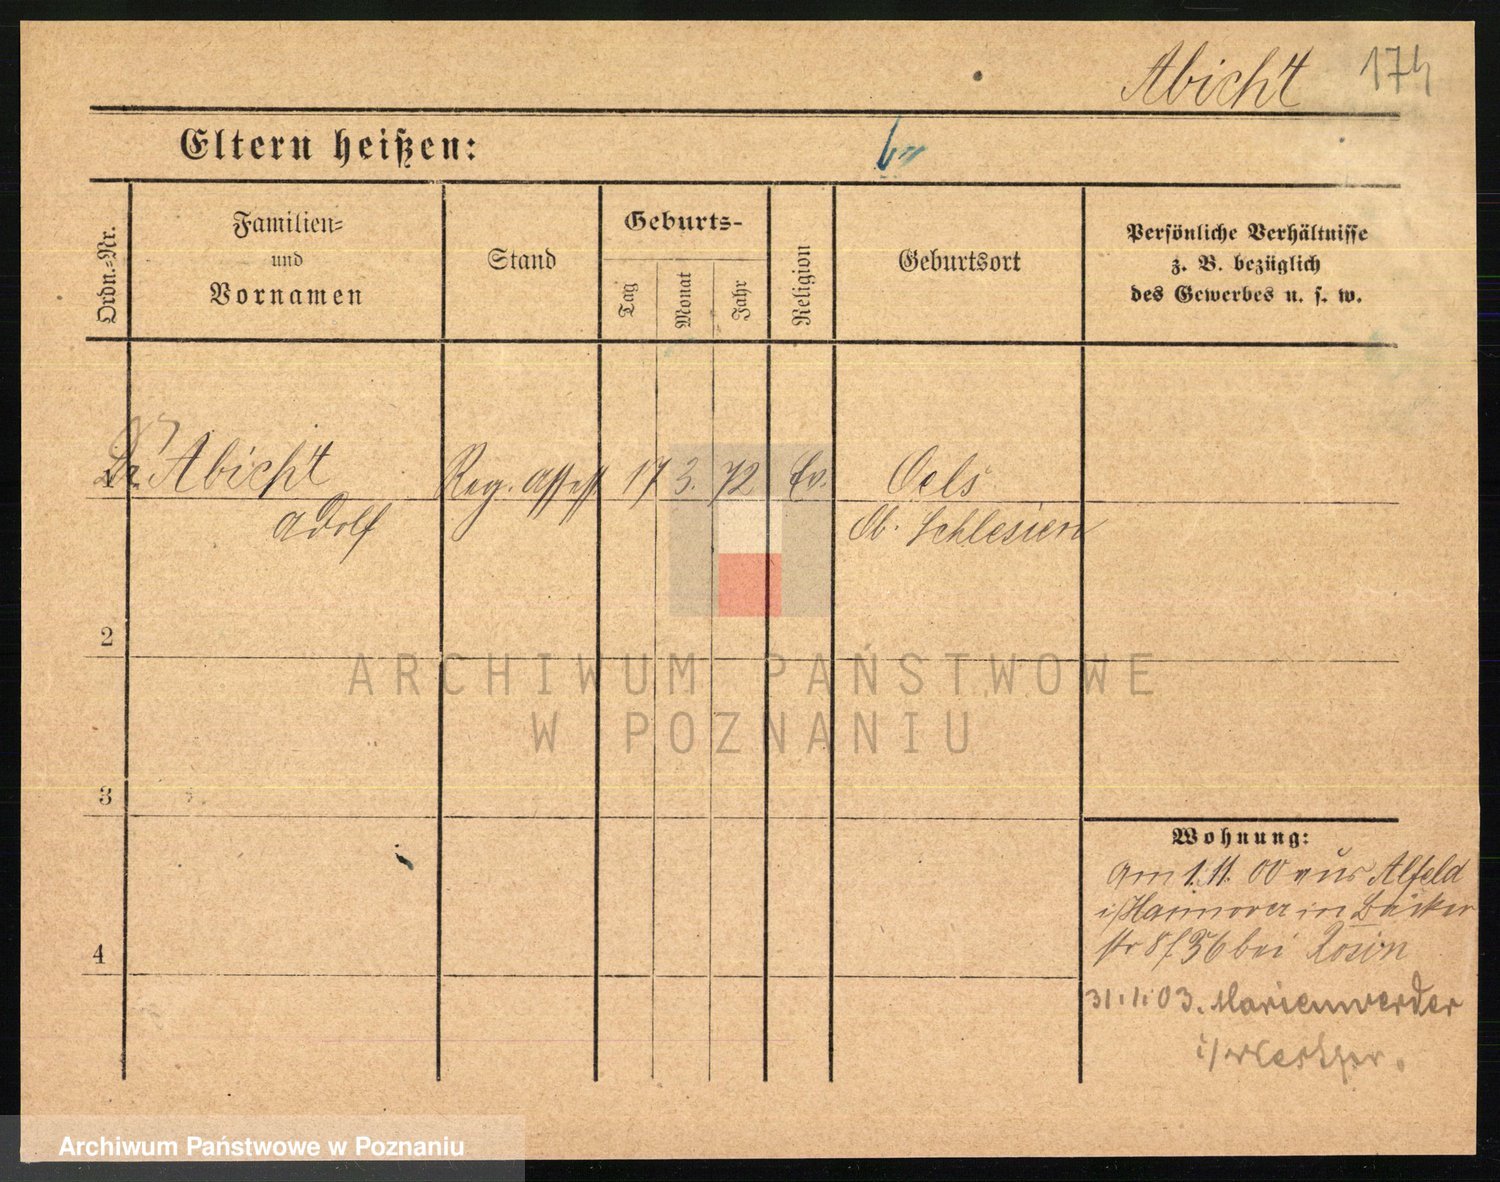 Abicht 174
Eltern heißen:
Ordn.-Nr.
Familien-
und
Vornamen
Stand
Geburts-
Tag
Monat
Jahr
Religion
Geburtsort
Persönliche Verhältnisse
z. B. bezüglich
des Gewerbes u. s. w.
Dr. Abicht Reg. Assess 17 3. 72 Ev. Oels
Adolf Ob. Schlesien
2
3
4
Wohnung:
Am 1.11.00 aus Alfeld
i/Hannover in Bäcker
str 8/ 36 bei Rosin
31.1.03. Marienwerder
i/Westpr.
ARCHIWUM PAŃSTWOWE
W POZNANIU
Archiwum Państwowe w Poznaniu